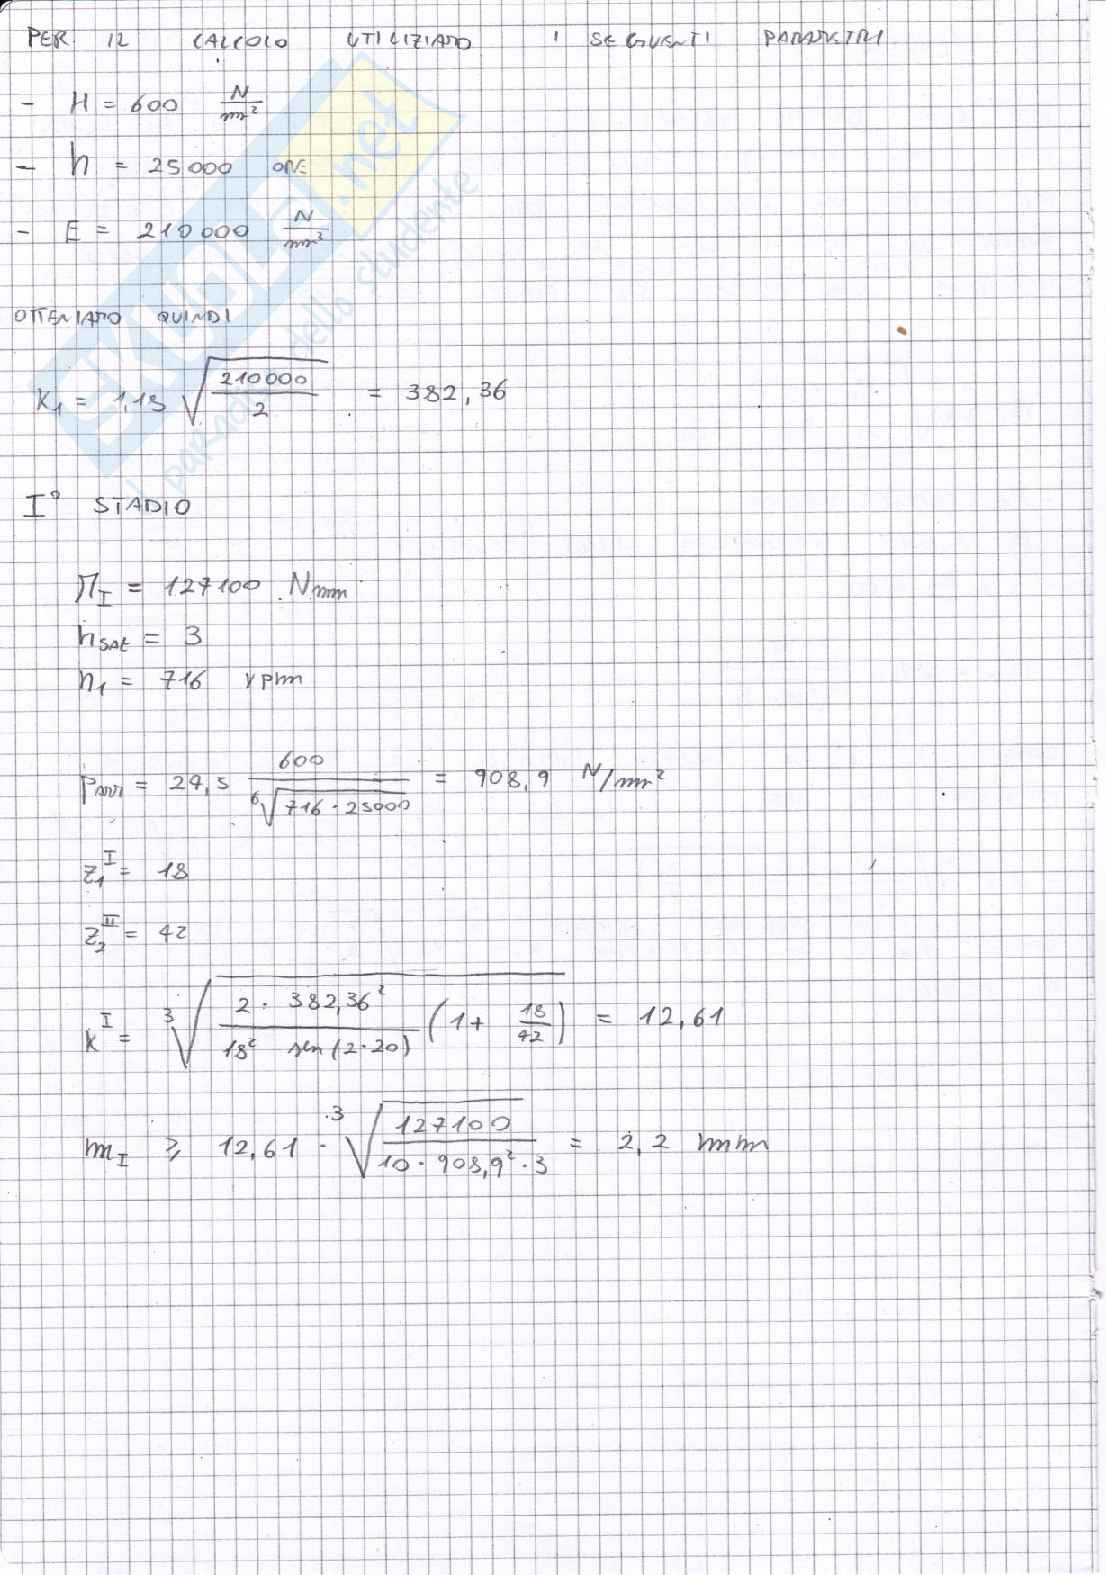 PER IL CALCOLO UTILIZIAMO I SEGUENTI PARAMETRI
- H = 600 N/mm²
- h = 25000 ORE
- E = 210000 N/mm²
OTTENIAMO QUINDI
K₁ = 1,18 √(210000/2) = 382,36
I° STADIO
M_I = 127100 Nmm
n_sat = 3
n₁ = 716 rpm
P_am = 24,5 600/⁶√(716·25000) = 908,9 N/mm²
z₁^I = 18
z₂^II = 42
K^I = ³√(2·382,36²/(18² sen(2·20)) (1+ 18/42)) = 12,61
m_I ≥ 12,61 · ³√(127100/(10·908,9²·3)) = 2,2 mm
SKUOLA.net
il paradiso dello studente